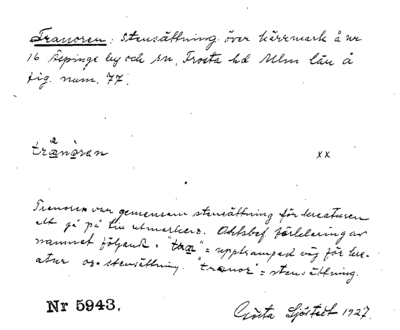 Tranoren: stensättning över kärrmark å nr
16 Äspinge by och sn, Frosta hd Mlm län å
fig. num. 77.
tranoren xx
Tranoren var gemensam stensättning för kreaturen
att gå på till utmarken. Ortsbef förklaring av
namnet följande. "tra" = upptrampad väg för kre-
atur o. stensättning. "tranor" = stensättning.
Nr 5943. Gösta Sjöstedt 1927.